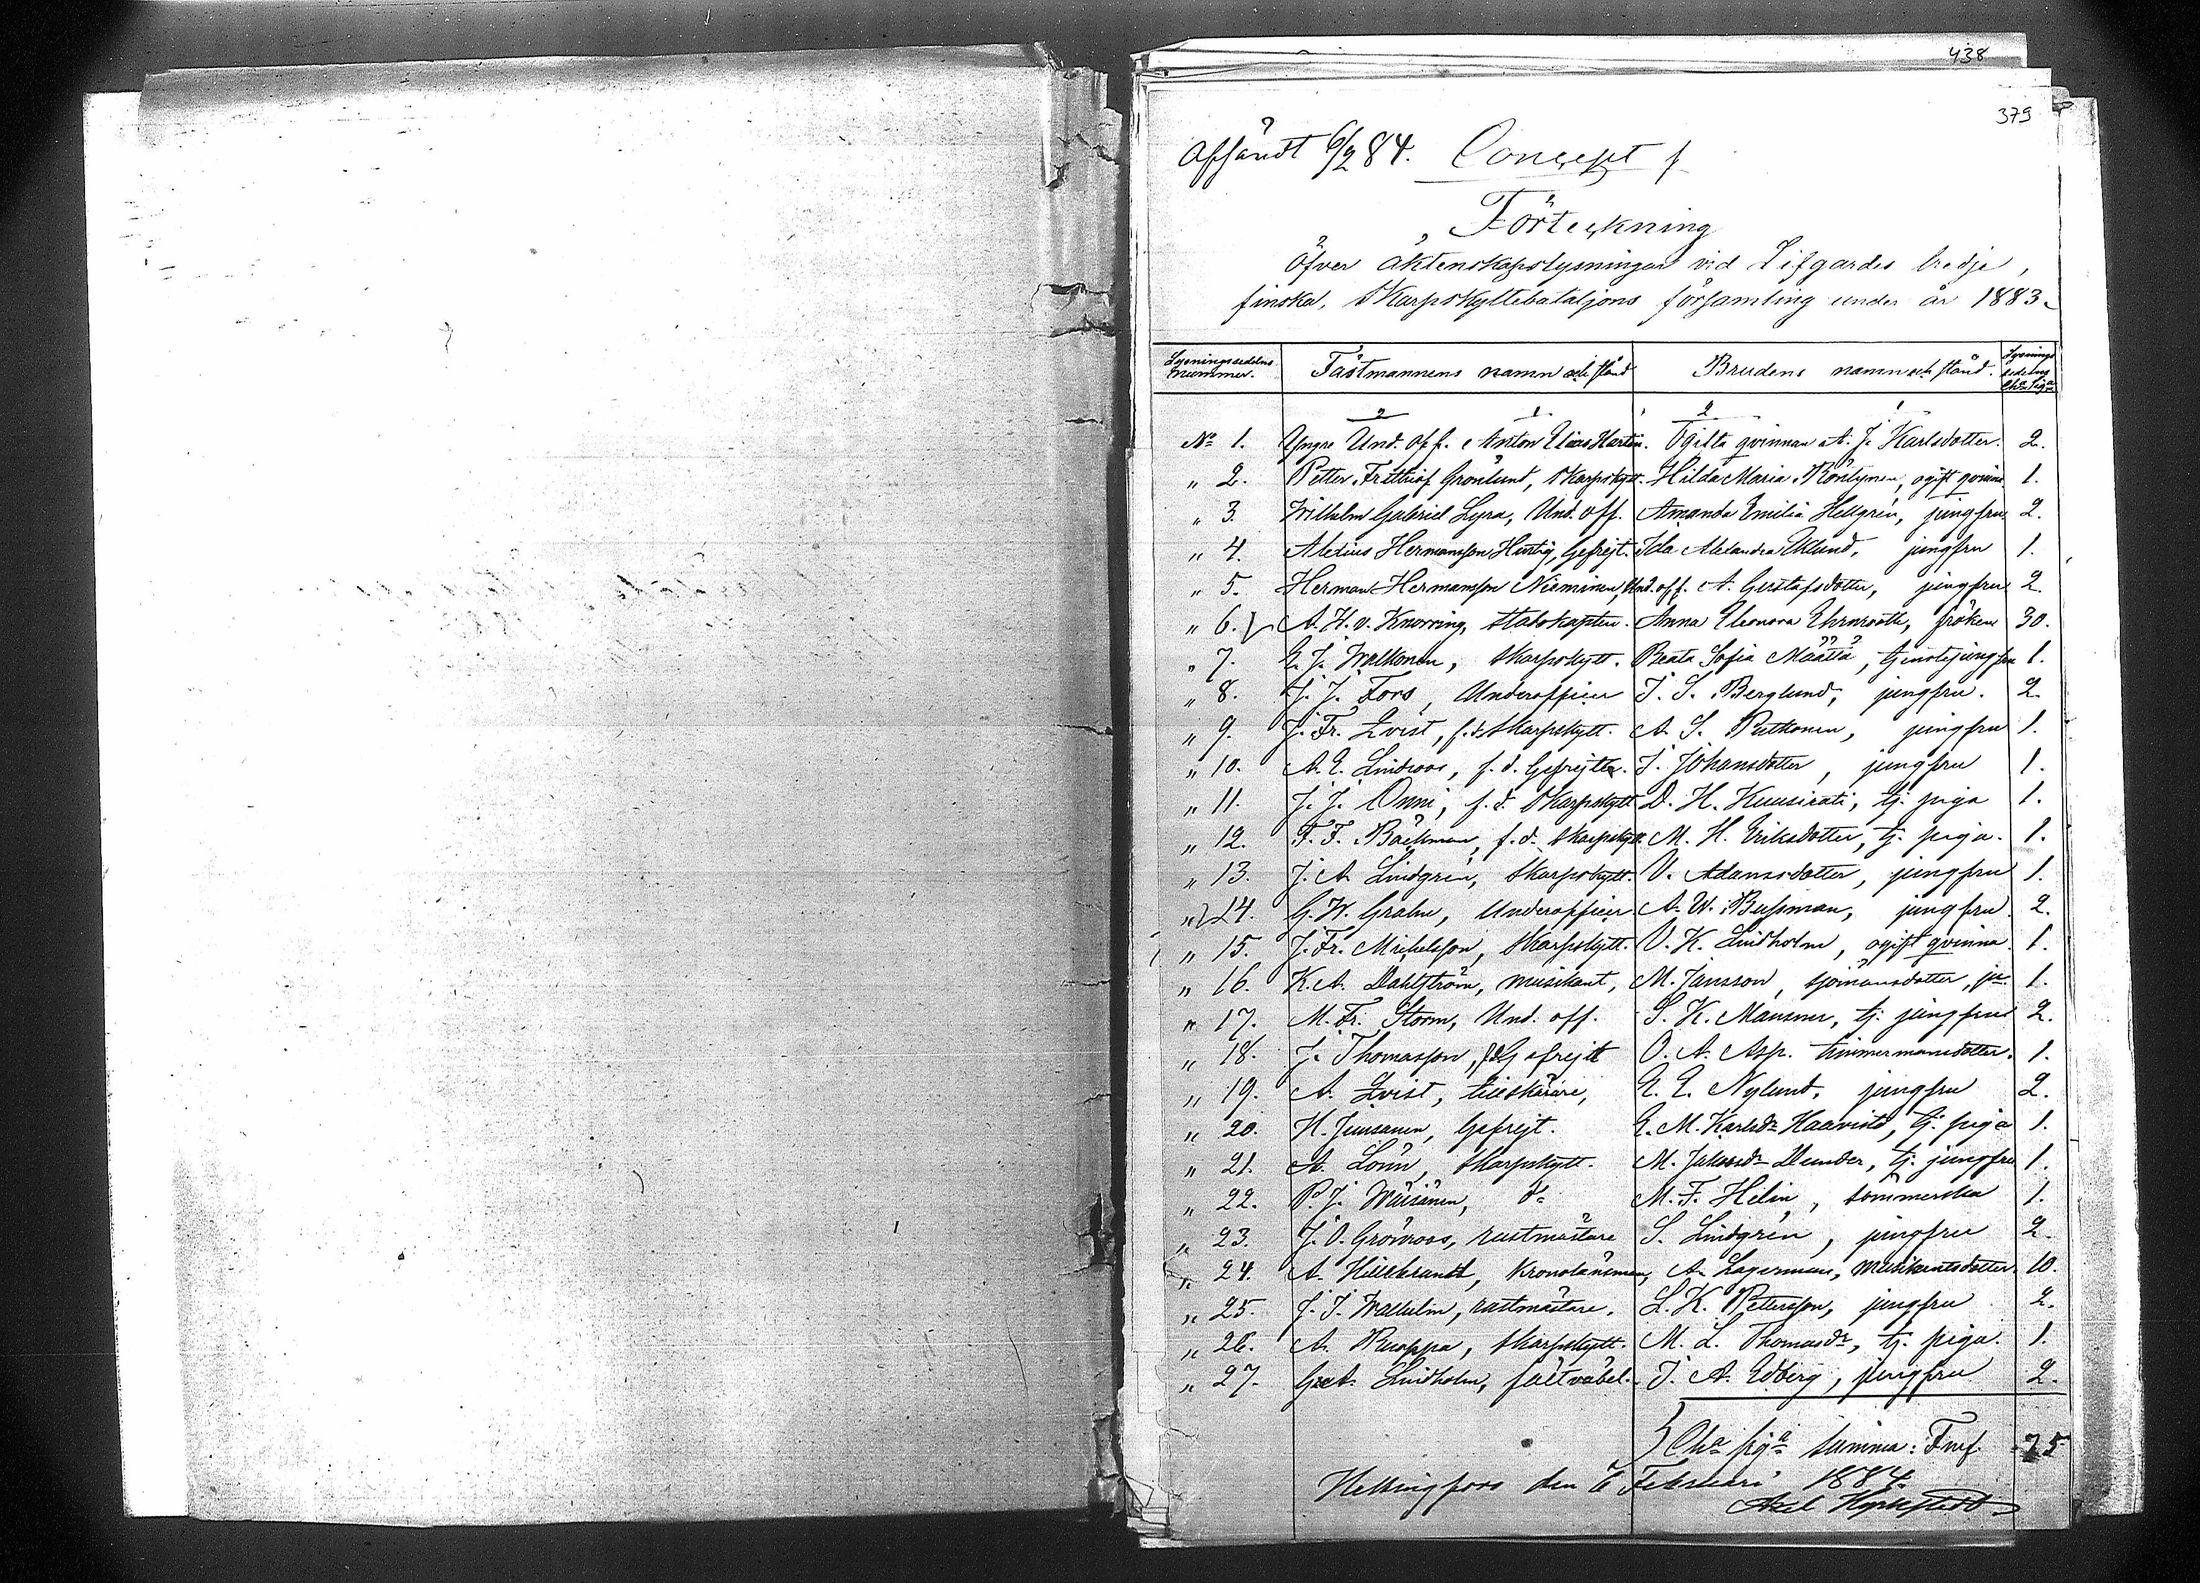 438
379
Afsändt 6/2 84. Concept
Förteckning
öfver äktenskapslysningar vid Lifgardes tredje
finska Skarpskyttebataljons församling under år 1883.
Lysningssedelns nummer. Fästmannens namn och stånd Brudens namn och stånd. Lysnings sedelns
No 1. Yngre Und. off. Anton Elias Ogifta qvinnan A. J. Karlsdotter. 2.
" 2. Petter Frithiof Grönlund, Skarpskytt. Hilda Maria ogift qvinna 1.
" 3. Wilhelm Gabriel Lyra, Und. off. Amanda Emilia Hellgrén, jungfru 2.
" 4. Alexius Hermansson Gefrejt. Ida Alexandra Eklund, jungfru 1.
" 5. Herman Hermansson Nieminen, Und. off. A. Gustafsdotter, jungfru 2.
" 6. A. H. v. Knorring, Stabskapten. Anna Eleonora Ehrnrooth, fröken 30.
" 7. G. J. Walkonen, Skarpskytt. Beata Sofia Määttä, tjenstejungfru 1.
" 8. J. J. Fors, Underofficer J. S. Berglund, jungfru. 2.
" 9. J. Fr. Qvist, f.d. Skarpskytt. A. S. Putkonen, jungfru 1.
" 10. A. E. Lindroos, f. d. Gefrejter. J. Johansdotter, jungfru 1.
" 11. J. J. Onni, f. d. Skarpskytt D. H. Kuusirati, tj. piga 1.
" 12. F. F. Bäckman, f. d. Skarpskytt. M. H. Eriksdotter, tj. piga. 1.
" 13. J. A. Lindgrén, Skarpskytt. V. Adamsdotter, jungfru 1.
" 14. G. W. Grahn, Underofficer. A. W. Bussman, jungfru 2.
" 15. J. Fr. Michelsson, Skarpskytt. V. K. Lindholm, ogift qvinna 1.
" 16. K. A. Dahlström, musikant, M. Jansson, sjömansdotter, 1.
" 17. M. Fr. Storm, Und. off. S. K. Mansner, tj. jungfru 2.
" 18. J. Thomasson, f.d. Gefrejt O. A. Asp. timmermansdotter. 1.
" 19. A. Qvist, tillskärare, E. E. Nylund, jungfru 2.
" 20. H. Juusanen, Gefrejt. E. M. Karlsdr Haavisto, tj. piga 1.
" 21. A. Lönn, Skarpskytt. M. Jakobsdr Dunder, tj. jungfru 1.
" 22. P. J. Wäisänen, do M. F. Helin, sömmerska 1.
" 23. J. O. Grönroos, rustmästare S. Lindgrén, jungfru 2.
" 24. A. Hillebrandt, Kronolänsman, A. Lagerman, Musikantsdotter 10.
" 25. J. J. Wallelm, rustmästare. L. K. Pettersson, jungfru 2.
" 26. A. Ruoppa, Skarpskytt. M. L. Thomasdr, tj. piga. 1.
" 27. G. A. Lindholm, fältväbel. J. A. Edberg, jungfru 2.
Summa: Fmf. 75
Helsingfors den 6 Februari 1884.
Axel